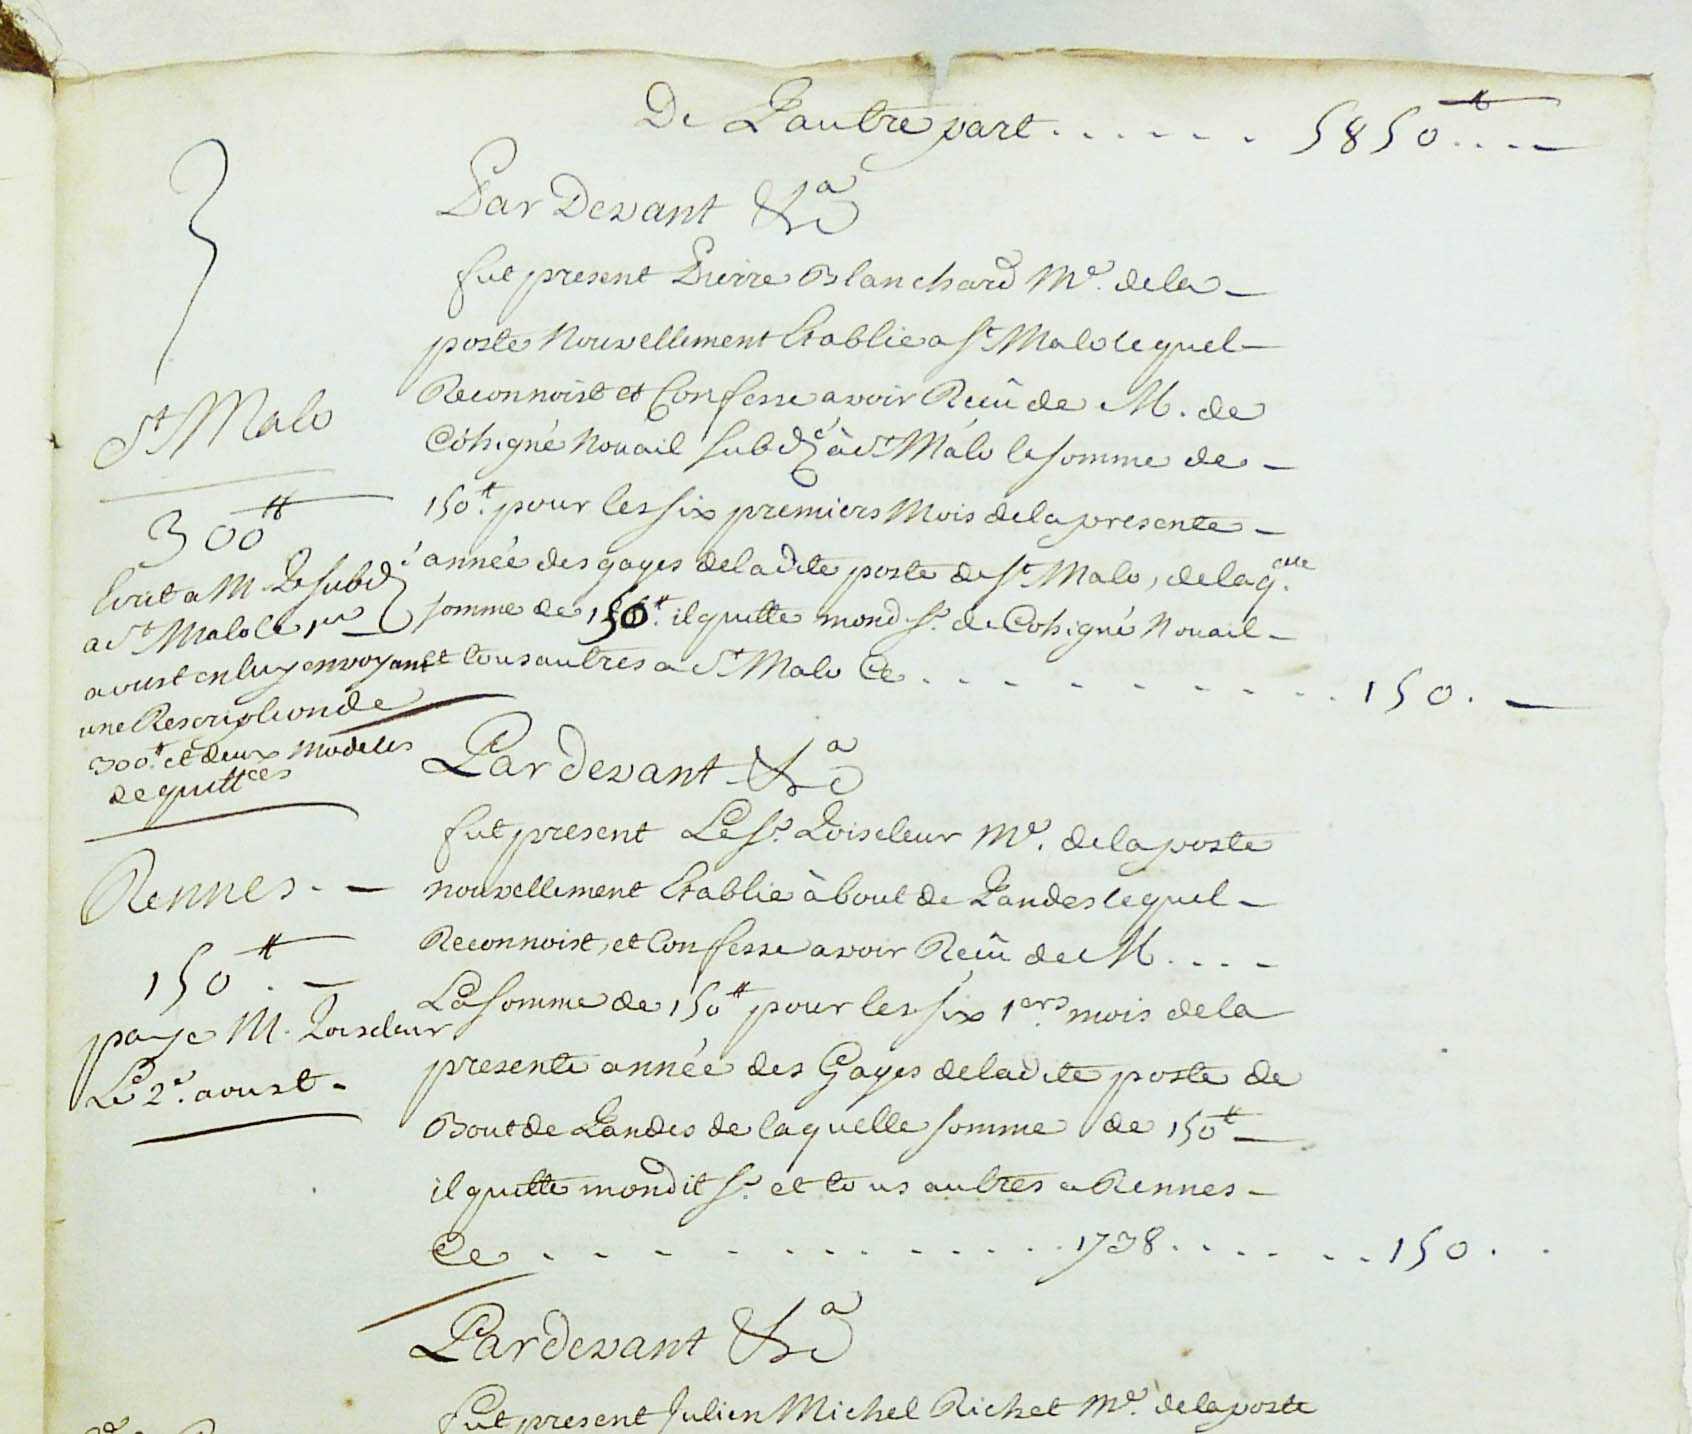 De Lautre part . . . . . . 5850tt . . . .
Par Devant &ca
fut present Pierre Blanchard Me. dela
poste Nouvellement Etablie a St Malo lequel
Reconnoist et Confesse avoir Receû de M. de
Cohigné Nouail subdé à St Malo la somme de
150tt. pour les six premiers Mois dela presente
année des gages deladite poste de St Malo, de laqelle
somme de 150tt. il quitte mond sr. de Cohigné Nouail
et tous autres a St Malo Ce . . . . . . . . . . 150.
Par devant &ca
fut present Le Sr. Loiseleur Me. dela poste
nouvellement Etablie à bout de Landes lequel
Reconnoist, et Confesse avoir Receû de M. . . .
La Somme de 150tt pour les six 1ers. mois dela
presente année des Gages deladite poste de
Bout de Landes de laquelle somme de 150tt
il quitte mondit sr. et tous autres a Rennes
Ce . . . . . . . . . . . . 1738 . . . . . . 150 . .
Par devant &ca
fut present Julien Michel Richet Me. dela poste
St Malo
300tt
Ecrit a M. Le subdé
a St Malo le 1er
aoust en luy envoyant
une Rescription de
300tt. et deux modeles
de quittces
Rennes
150tt.
payé M. Loiseleur
Le 2e. aoust